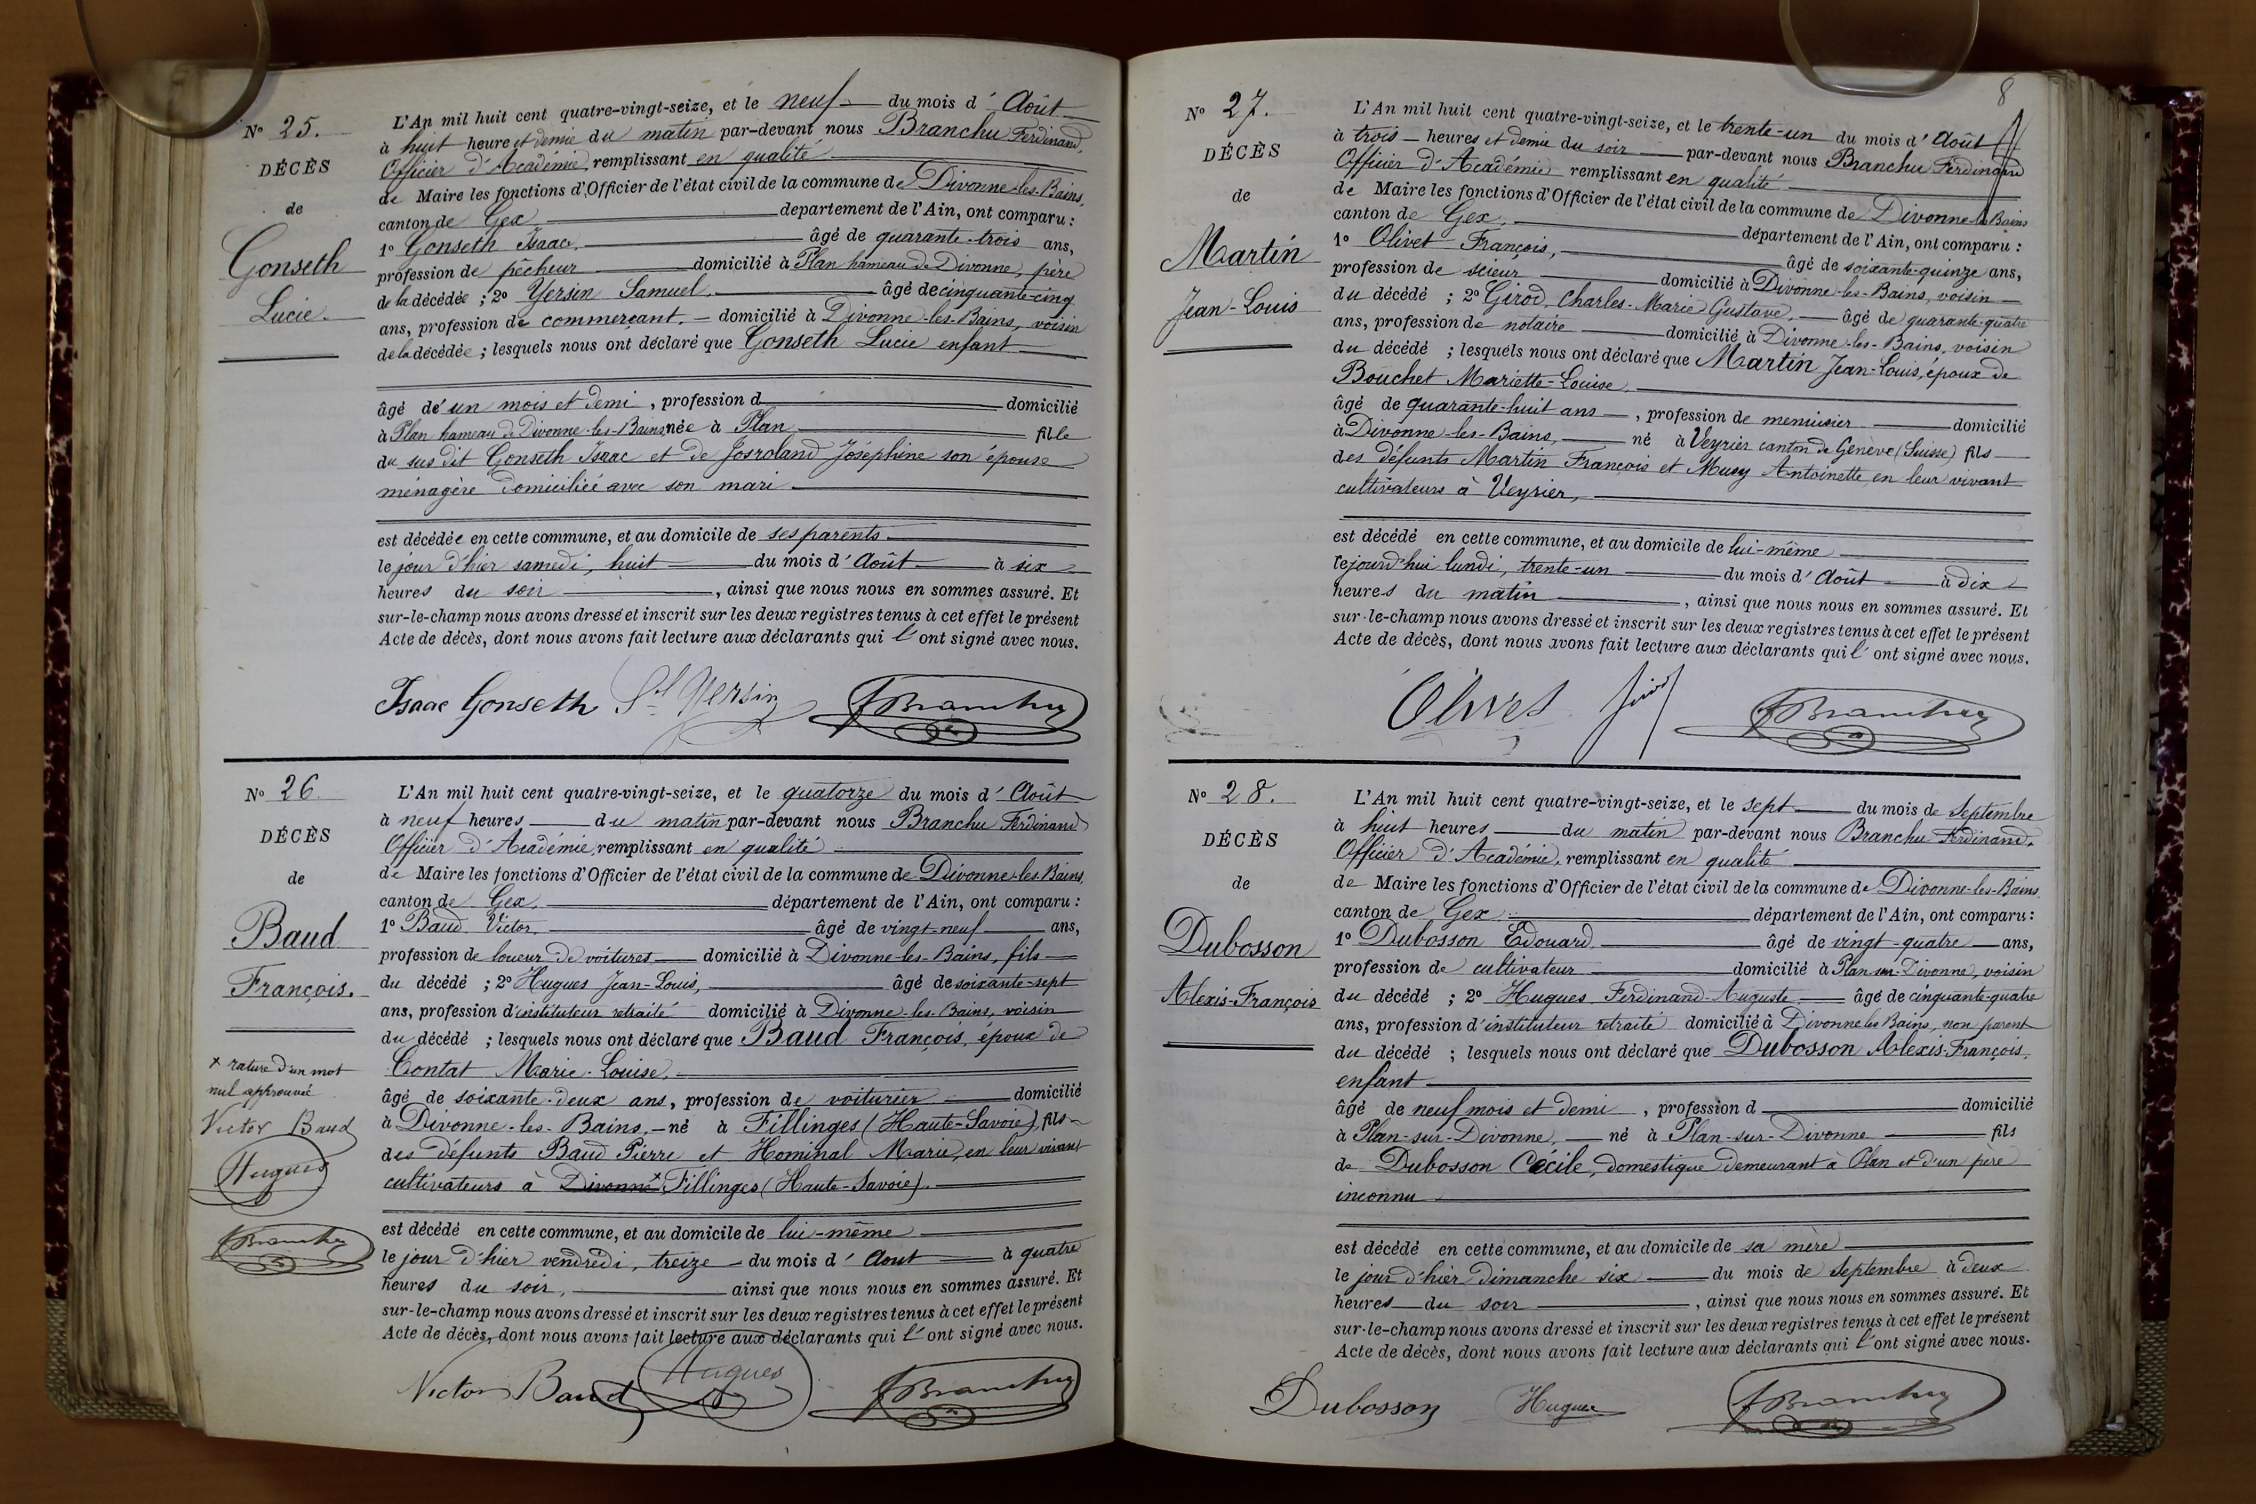 Nº 25.
DÉCÈS
de
Gonseth
Lucie.
L'An mil huit cent quatre-vingt-seize, et le neuf du mois d' Août
à huit heure et demie du matin par-devant nous Branchu Ferdinand,
Officier d'Académie, remplissant en qualité
de Maire les fonctions d'Officier de l'état civil de la commune de Divonne-les-Bains,
canton de Gex département de l'Ain, ont comparu :
1º Gonseth Isaac, âgé de quarante-trois ans,
profession de pêcheur domicilié à Plan hameau de Divonne, père
de la décédée ; 2º Yersin Samuel, âgé de cinquante-cinq
ans, profession de commerçant. domicilié à Divonne-les-Bains, voisin
de la décédée ; lesquels nous ont déclaré que Gonseth Lucie enfant
âgé de un mois et demi, profession d domicilié
à Plan hameau de Divonne-les-Bains, née à Plan fille
du sus dit Gonseth Isaac et de Josroland Joséphine son épouse
ménagère domiciliée avec son mari
est décédée en cette commune, et au domicile de ses parents
le jour d'hier samedi, huit du mois d' Août à six
heures du soir, ainsi que nous nous en sommes assuré. Et
sur-le-champ nous avons dressé et inscrit sur les deux registres tenus à cet effet le présent
Acte de décès, dont nous avons fait lecture aux déclarants qui l' ont signé avec nous.
Isaac Gonseth Sl Yersin FBranchu
Nº 26.
DÉCÈS
de
Baud
François.
x rature d'un mot
nul approuvée
Victor Baud
Hugues
FBranchu
L'An mil huit cent quatre-vingt-seize, et le quatorze du mois d' Août
à neuf heures du matin par-devant nous Branchu Ferdinand
Officier d'Académie, remplissant en qualité
de Maire les fonctions d'Officier de l'état civil de la commune de Divonne-les-Bains,
canton de Gex, département de l'Ain, ont comparu :
1º Baud Victor, âgé de vingt-neuf ans,
profession de loueur de voitures domicilié à Divonne-les-Bains, fils
du décédé ; 2º Hugues Jean-Louis, âgé de soixante-sept
ans, profession d'instituteur retraité domicilié à Divonne-les-Bains, voisin
du décédé ; lesquels nous ont déclaré que Baud François, époux de
Contat Marie-Louise,
âgé de soixante-deux ans, profession de voiturier domicilié
à Divonne-les-Bains, né à Fillinges (Haute-Savoie), fils
des défunts Baud Pierre et Hominal Marie, en leur vivant
cultivateurs à Divonne x Fillinges (Haute-Savoie).
est décédé en cette commune, et au domicile de lui-même
le jour d'hier vendredi, treize du mois d' Aout à quatre
heures du soir, ainsi que nous nous en sommes assuré. Et
sur-le-champ nous avons dressé et inscrit sur les deux registres tenus à cet effet le présent
Acte de décès, dont nous avons fait lecture aux déclarants qui l' ont signé avec nous.
Victor Baud Hugues FBranchu
8
Nº 27.
DÉCÈS
de
Martin
Jean-Louis
L'An mil huit cent quatre-vingt-seize, et le trente-un du mois d' Août
à trois heures et demie du soir par-devant nous Branchu Ferdinand
Officier d'Académie remplissant en qualité
de Maire les fonctions d'Officier de l'état civil de la commune de Divonne-les-Bains
canton de Gex, département de l'Ain, ont comparu :
1º Olivet François, âgé de soixante-quinze ans,
profession de scieur domicilié à Divonne-les-Bains, voisin
du décédé ; 2º Girod Charles-Marie Gustave, âgé de quarante-quatre
ans, profession de notaire domicilié à Divonne-les-Bains, voisin
du décédé ; lesquels nous ont déclaré que Martin Jean-Louis, époux de
Bouchet Mariette-Louise,
âgé de quarante-huit ans, profession de menuisier domicilié
à Divonne-les-Bains, né à Veyrier canton de Genève (Suisse) fils
des défunts Martin François et Muzy Antoinette, en leur vivant
cultivateurs à Veyrier,
est décédé en cette commune, et au domicile de lui-même
lejourd'hui lundi, trente-un du mois d' Août à dix
heures du matin, ainsi que nous nous en sommes assuré. Et
sur-le-champ nous avons dressé et inscrit sur les deux registres tenus à cet effet le présent
Acte de décès, dont nous avons fait lecture aux déclarants qui l' ont signé avec nous.
Olivet Girod FBranchu
Nº 28.
DÉCÈS
de
Dubosson
Alexis-François
L'An mil huit cent quatre-vingt-seize, et le sept du mois de Septembre
à huit heures du matin par-devant nous Branchu Ferdinand,
Officier d'Académie, remplissant en qualité
de Maire les fonctions d'Officier de l'état civil de la commune de Divonne-les-Bains,
canton de Gex département de l'Ain, ont comparu :
1º Dubosson Édouard âgé de vingt-quatre ans,
profession de cultivateur domicilié à Plan-sur-Divonne, voisin
du décédé ; 2º Hugues Ferdinand-Auguste âgé de cinquante-quatre
ans, profession d'instituteur retraité domicilié à Divonne les Bains, non parent
du décédé ; lesquels nous ont déclaré que Dubosson Alexis-François,
enfant
âgé de neuf mois et demi, profession d domicilié
à Plan-sur-Divonne, né à Plan-sur-Divonne fils
de Dubosson Cécile, domestique demeurant à Plan et d'un père
inconnu
est décédé en cette commune, et au domicile de sa mère
le jour d'hier dimanche six du mois de Septembre à deux
heures du soir, ainsi que nous nous en sommes assuré. Et
sur-le-champ nous avons dressé et inscrit sur les deux registres tenus à cet effet le présent
Acte de décès, dont nous avons fait lecture aux déclarants qui l' ont signé avec nous.
Dubosson Hugues FBranchu